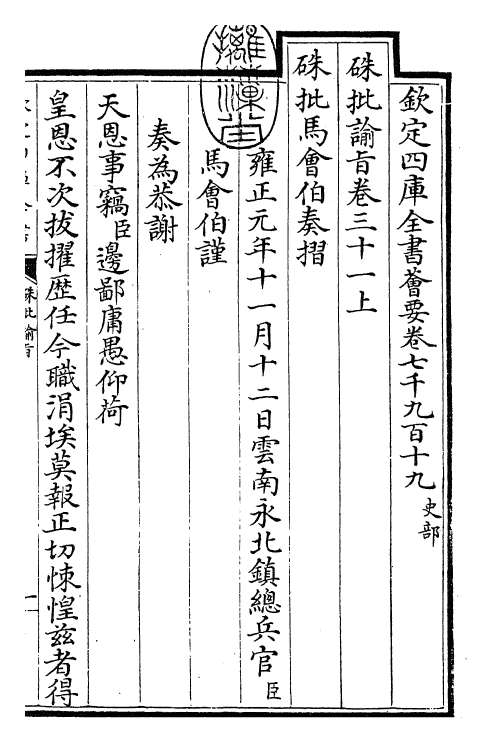 欽定四庫全書薈要卷七千九百十九 史部
硃批諭旨卷三十一上
硃批馬會伯奏摺
雍正元年十一月十二日雲南永北鎮總兵官臣
馬會伯謹
奏為恭謝
天恩事竊臣邊鄙庸愚仰荷
皇恩不次拔擢歷任今職涓埃莫報正切悚惶兹者得
硃批諭旨
一